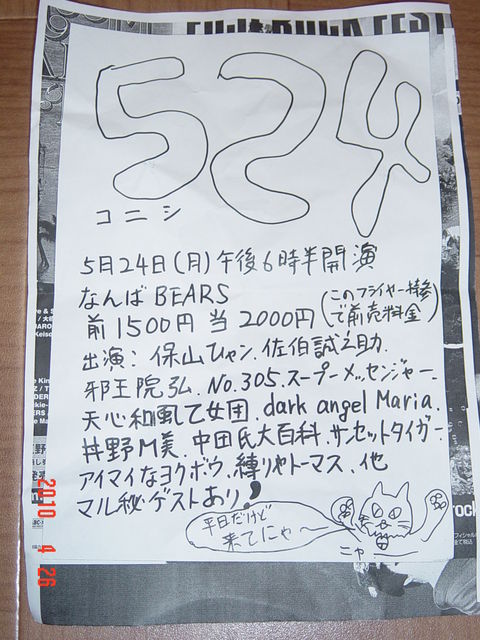 FUJI ROCK FEST
524
コニシ
5月24日(月)午後6時半開演
なんばBEARS
前1500円 当2000円(このフライヤー持参で前売料金)
出演:保山ひャン.佐伯誠之助.
邪王院弘.No.305.スープーメッセンジャー.
天心和風乙女団.dark angel Maria.
丼野M美.中田氏大百科.サンセットタイガー.
アイマイなヨクボウ.縛りやトーマス.他
マル秘ゲストあり!
平日だけど
来てにゃ〜
ニャー
rock
2010 4 26